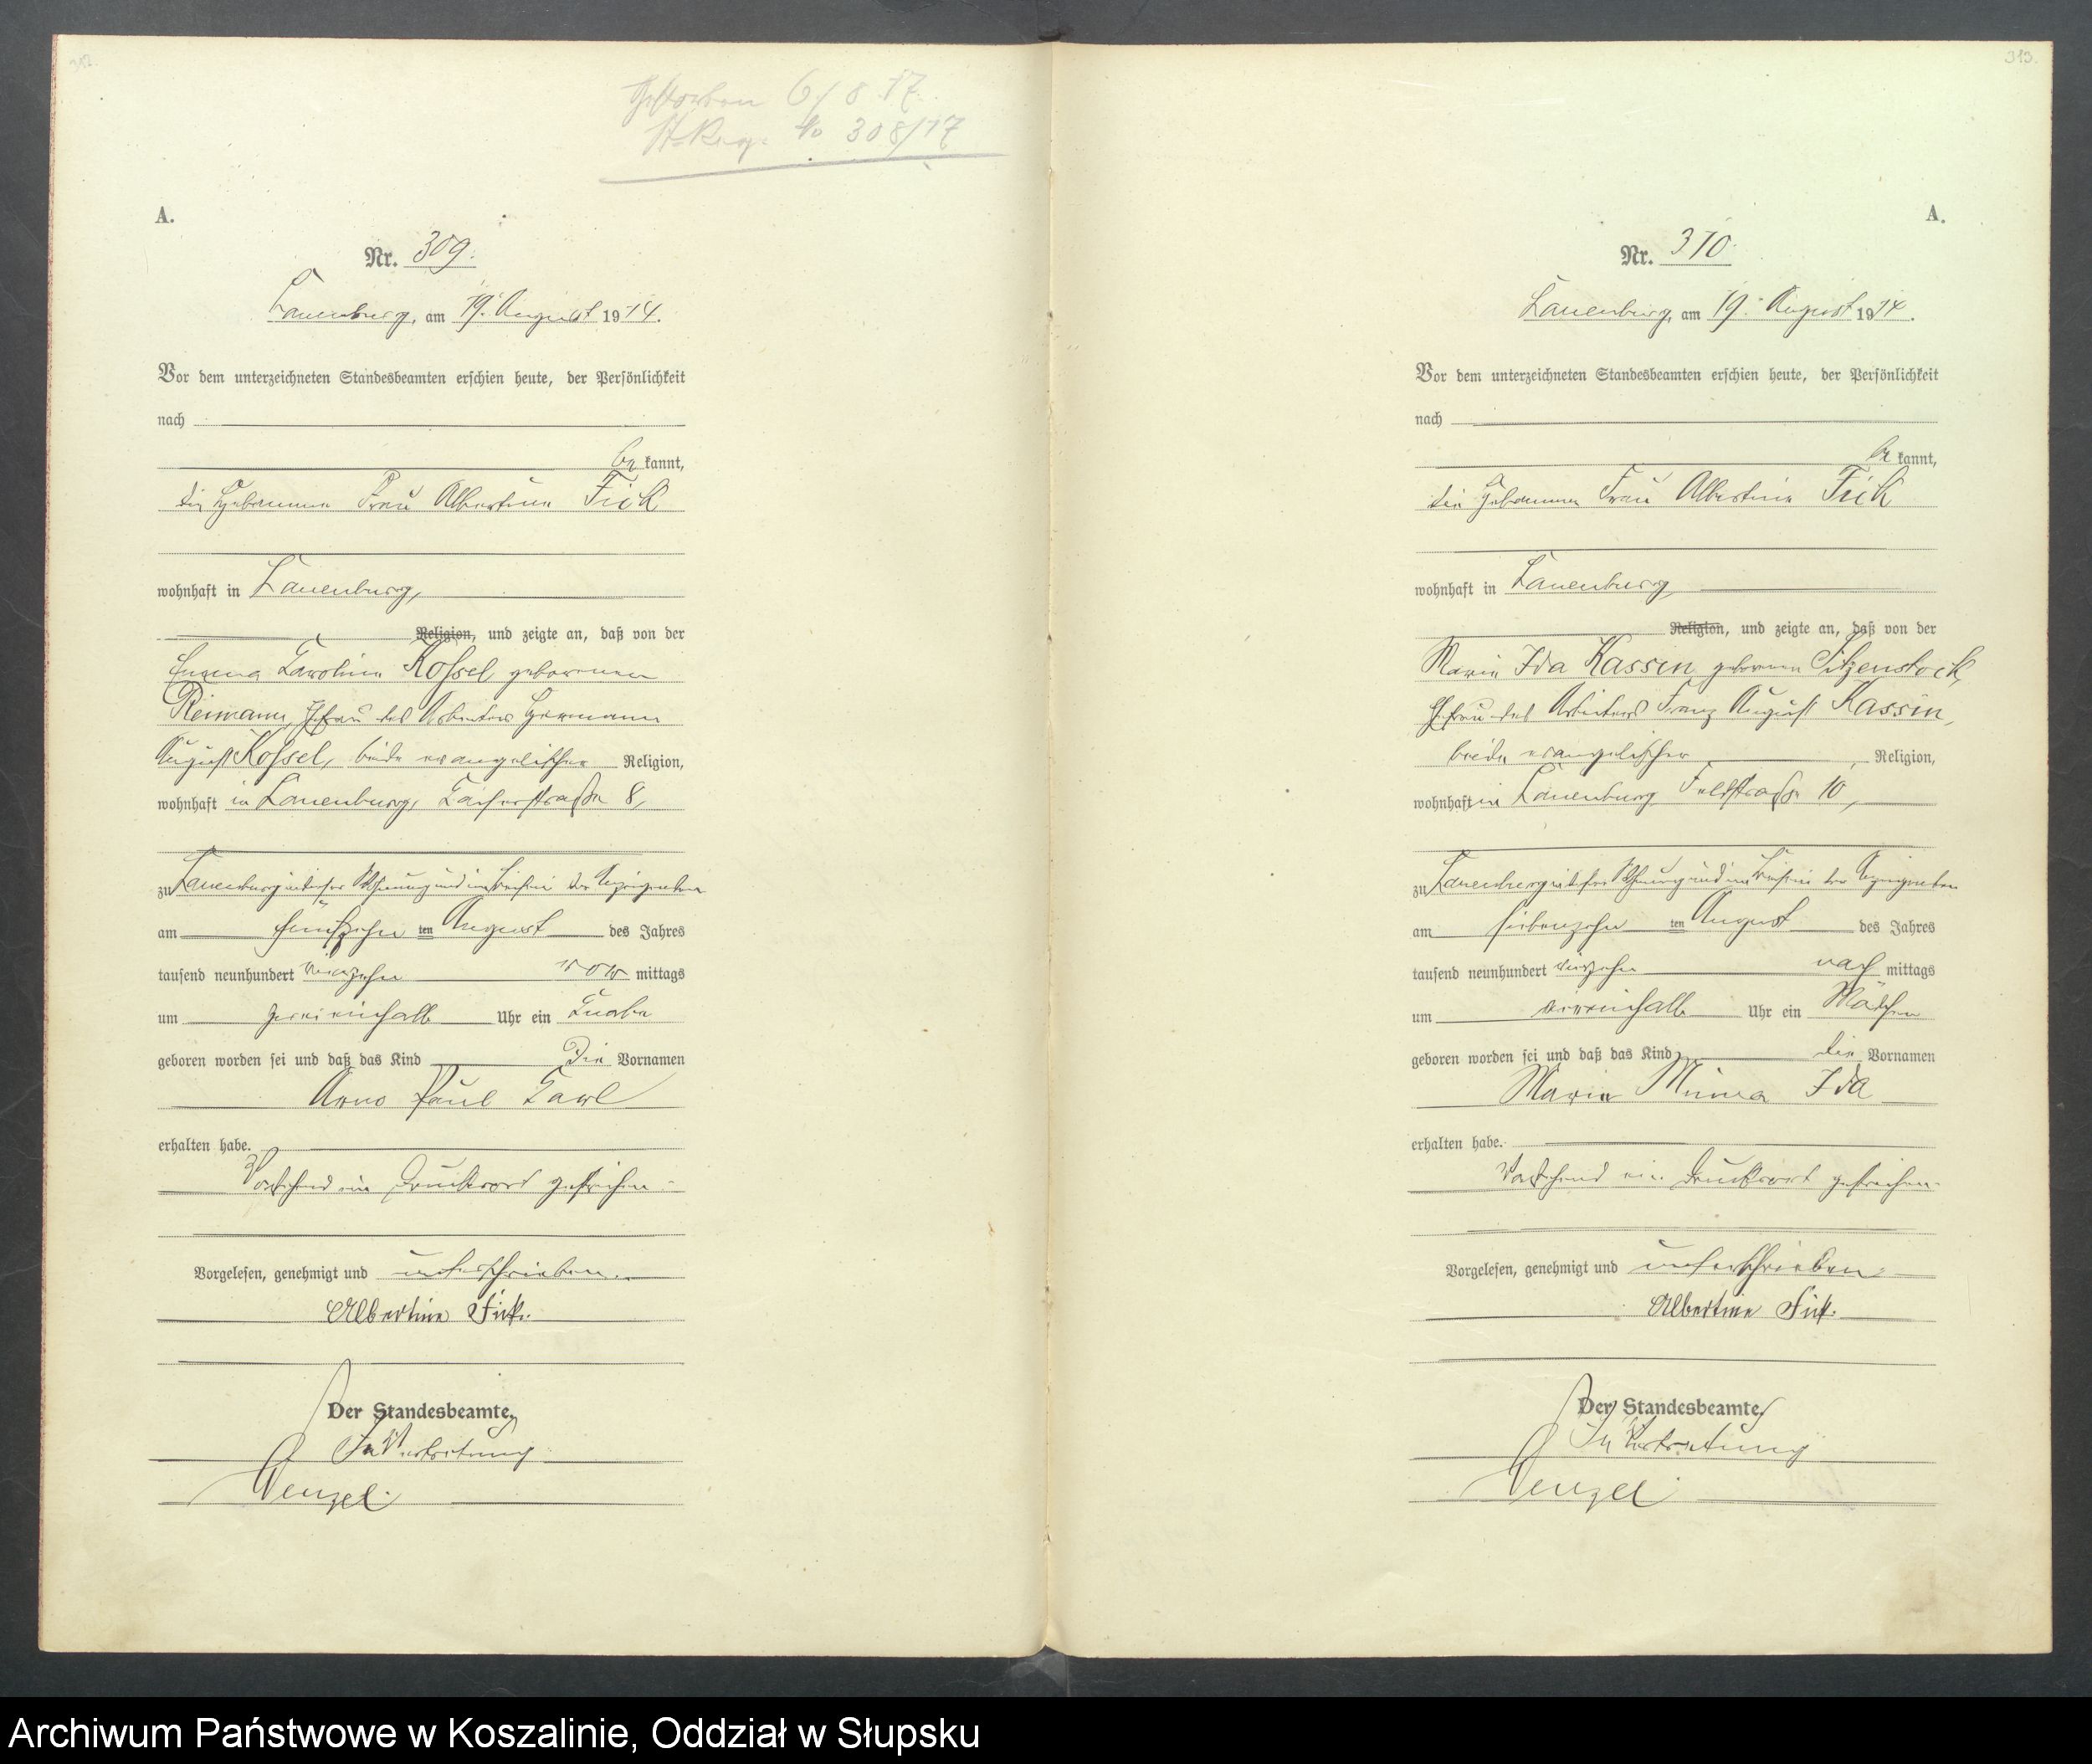 312.
Gestorben 6/8 17.
St. Reg. No 308/17
A.
Nr. 309.
Lauenburg, am 19. August 1914.
Vor dem unterzeichneten Standesbeamten erschien heute, der Persönlichkeit
nach
be kannt,
die Hebamme Frau Albertine Fick
wohnhaft in Lauenburg,
Religion, und zeigte an, daß von der
Emma Karoline Kossel geborenen
Reimann, Ehefrau des Arbeiters Hermann
August Kossel, beide evangelischer Religion,
wohnhaft in Lauenburg, 8,
zu Lauenburg in dieser Wohnung und im Beisein der Anzeigenden
am fünfzehn ten August des Jahres
tausend neunhundert vierzehn vor mittags
um zweieinhalb Uhr ein Knabe
geboren worden sei und daß das Kind die Vornamen
Arno Paul Karl
erhalten habe.
Vorstehend ein Druckwort gestrichen.
Vorgelesen, genehmigt und unterschrieben.
Albertine Fick.
Der Standesbeamte,
In Vertretung
Wenzel.
313.
A.
Nr. 310.
Lauenburg, am 19. August 1914.
Vor dem unterzeichneten Standesbeamten erschien heute, der Persönlichkeit
nach
be kannt,
die Hebamme Frau Albertine Fick
wohnhaft in Lauenburg
Religion, und zeigte an, daß von der
Marie Ida Kassin geborenen Sitzenstock,
Ehefrau des Arbeiters Franz August Kassin,
beide evangelischer Religion,
wohnhaft in Lauenburg Feldstraße 10,
zu Lauenburg in dieser Wohnung und im Beisein der Anzeigenden
am siebenzehn ten August des Jahres
tausend neunhundert vierzehn nach mittags
um viereinhalb Uhr ein Mädchen
geboren worden sei und daß das Kind die Vornamen
Marie Minna Ida
erhalten habe.
Vorstehend ein Druckwort gestrichen.
Vorgelesen, genehmigt und unterschrieben.
Albertine Fick.
Der Standesbeamte,
In Vertretung
Wenzel
Archiwum Państwowe w Koszalinie, Oddział w Słupsku